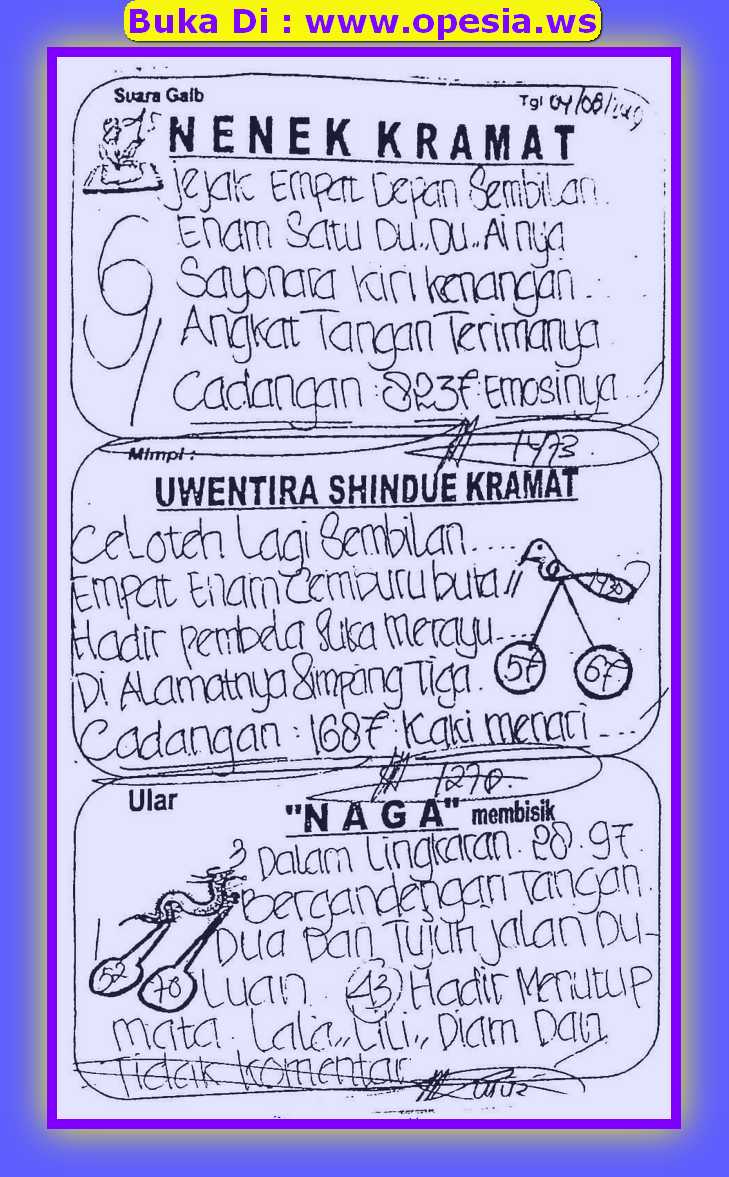 Buka Di : www.opesia.ws
Suara Gaib
Tgl 04/08/
NENEK KRAMAT
Jejak Empat Depan Sembilan.
Enam Satu Du..Du..Ainya
9
Sayonara kiri kenangan..
Angkat Tangan Terimanya
Cadangan : 8237 Emosinya...
1473.
Mimpi :
UWENTIRA SHINDUE KRAMAT
Celoteh Lagi Sembilan....
Empat Enam Cemburu buta //
Hadir pembela Suka Merayu...
57 67
Di ALamatnya Simpang Tiga.
Cadangan : 1687 Kaki menari...
1270.
Ular
"NAGA" membisik
3
Dalam Lingkaran. 28.97.
Bergandengan Tangan.
1
Dua Dan Tujuh Jalan Du-
52 78
Luan. 43 Hadir Menutup
mata. Lala,, Lili,, Diam Dan
Tidak Komentar